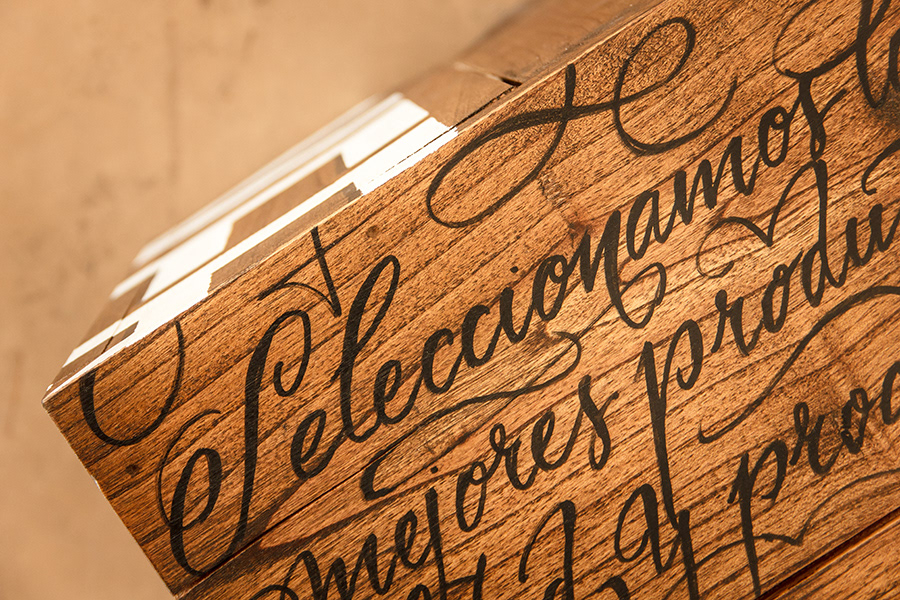 Seleccionamos
mejores produ
y proc